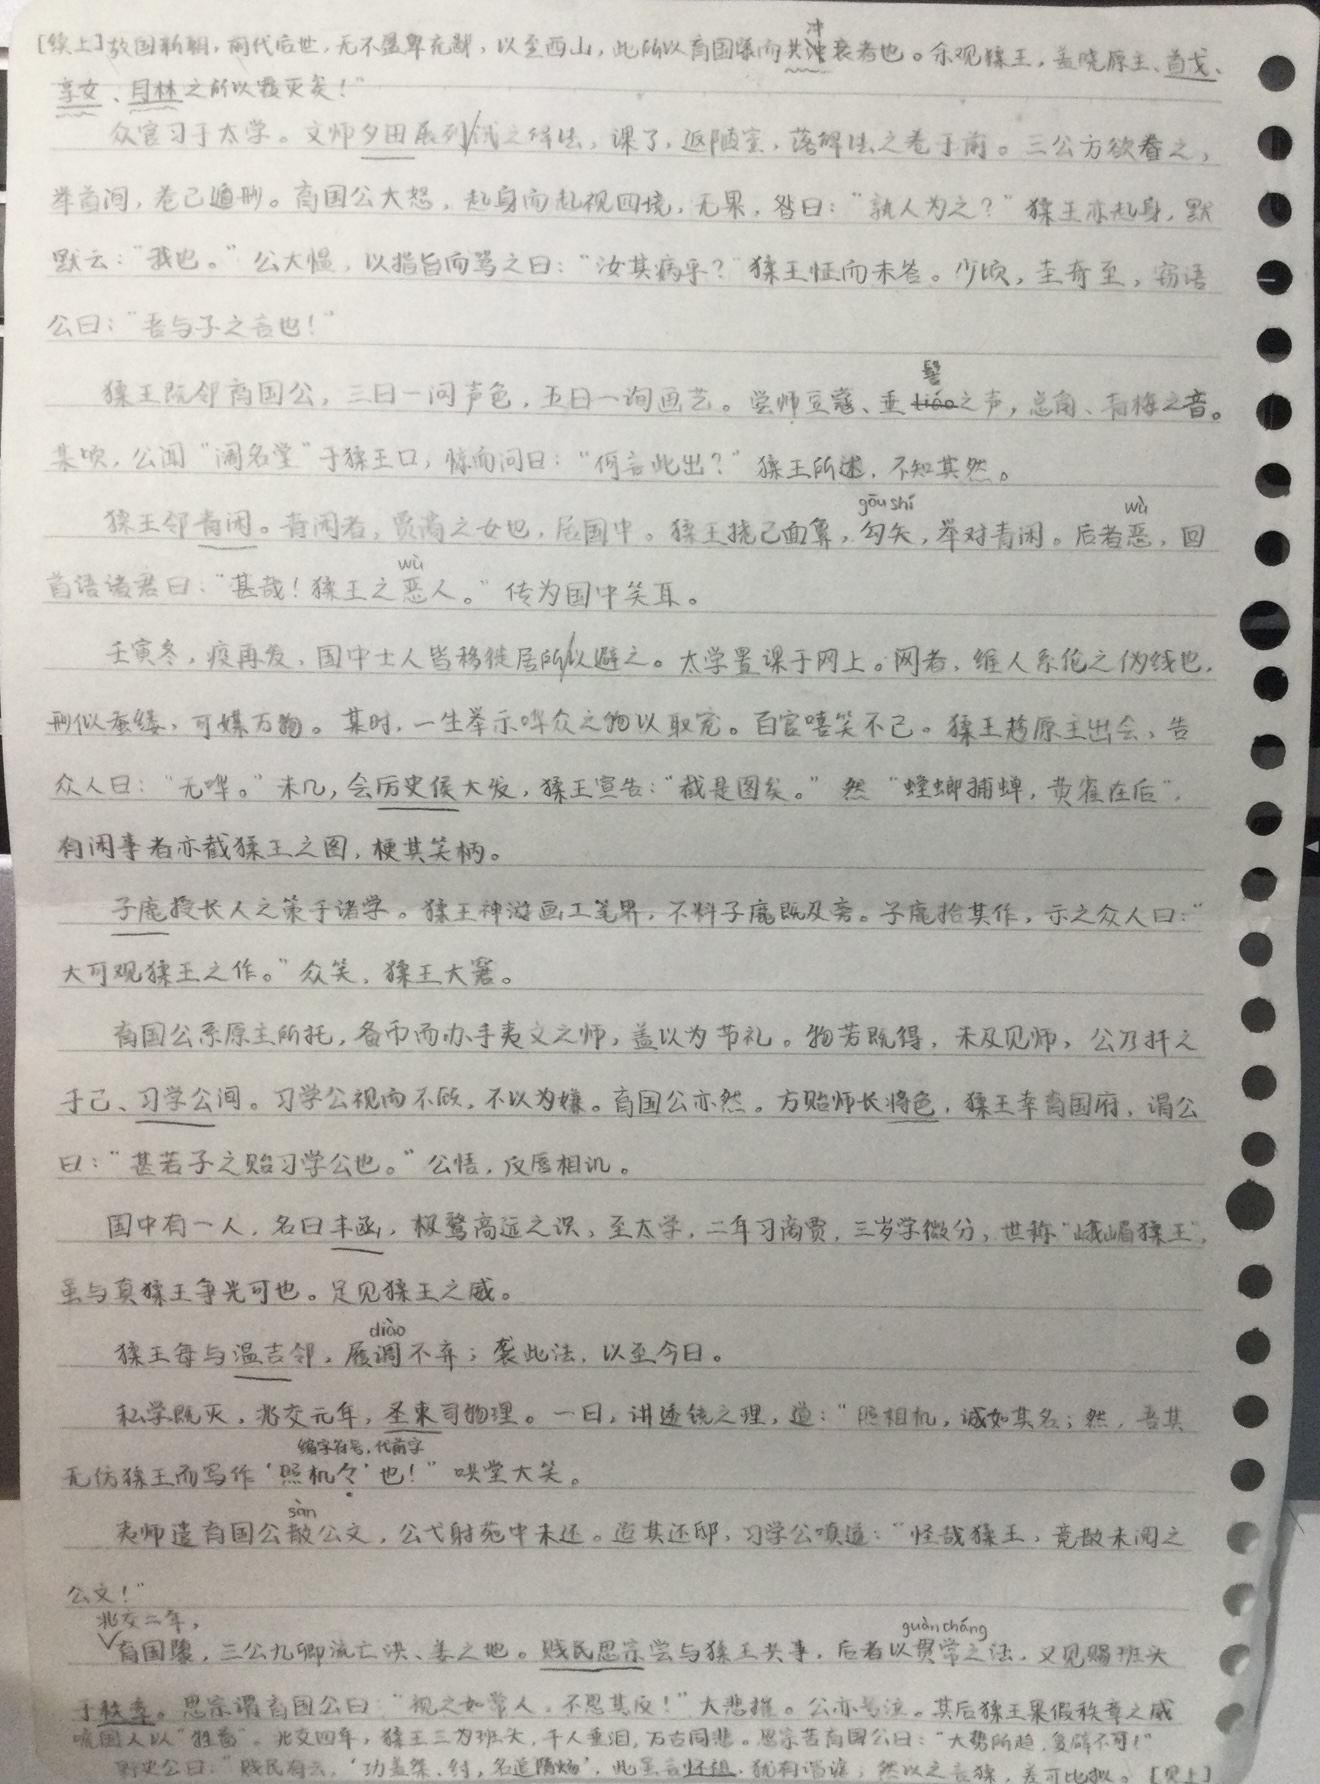 [续上]故国新朝，前代后世，无不显卑充鄙，以至西山，此所以育国隳而共冲衰者也。余观猱王，盖晓原主、首戈、
享女、月林之所以覆灭矣！”
众官习于太学。文师夕田展列试之释法，课了，返陋室，落解法之卷于前。三公方欲眷之，
举首间，卷已遁形。育国公大怒，起身而乱视四境，无果，咎曰：“孰人为之？”猱王亦起身，默
默云：“我也。”公大愠，以指旨向骂之曰：“汝其病乎？”猱王怔而未答。少顷，奇至，窃语
公曰：“吾与子之言也！”
猱王既邻育国公，三日一问声色，五日一询画艺。尝师豆蔻、垂髫之声，总角、青梅之音。
某顷，公闻“闹名堂”于猱王口，惊而问曰：“何言此出？”猱王所述，不知其然。
gōu shí wù
猱王邻青闲。青闲者，贾商之女也，居国中。猱王挠己面鼻，勾矢，举对青闲。后者恶，回
wù
首语诸君曰：“甚哉！猱王之恶人。”传为国中笑耳。
壬寅冬，疫再发，国中士人皆移徙居所以避之。太学置课于网上。网者，维人系伦之伪线也，
形似蚕缕，可媒万物。某时，一生举示哗众之物以取宠。百官嘻笑不已。猱王趁原主出会，告
众人曰：“无哗。”未几，会历史侯大发，猱王宣告：“截是图矣。”然“螳螂捕蝉，黄雀在后”，
有闲事者亦截猱王之图，梗其笑柄。
子庵授长人之策于诸学。猱王神游画工笔界，不料子庵既及旁。子庵拾其作，示之众人曰：“
大可观猱王之作。”众笑，猱王大窘。
育国公系原主所托，备币而办手夷文之师，盖以为节礼。物若既得，未及见师，公乃扞之
于己、习学公间。习学公视而不顾，不以为嫌。育国公亦然。方贻师长将色，猱王幸育国府，谓公
曰：“甚若子之贻习学公也。”公悟，反唇相讥。
国中有一人，名曰丰函，极骛高远之识，至太学，二年习商贾，三岁学微分，世称“峨嵋猱王”，
虽与真猱王争光可也。足见猱王之威。
diào
猱王每与温吉邻，履调不弃；袭此法，以至今日。
私学既灭，兆交元年，圣东司物理。一日，讲透镜之理，道：“照相机，诚如其名；然，吾其
缩字符号，代前字
无仿猱王而写作‘照机々’也！”哄堂大笑。
sàn
夷师遣育国公散公文，公弋射苑中未还。迨其还邸，习学公嗔道：“怪哉猱王，竟散未阅之
公文！”
兆交二年，
guàn cháng
育国隳，三公九卿流亡洪、姜之地。贱民思宗尝与猱王共事，后者以贯常之法，又见赐班头
于秩章。思宗谓育国公曰：“视之如常人，不思其反！”大悲摧。公亦号泣。其后猱王果假秩章之威
国人以“”。兆交四年，猱王三为班头，千人垂泪，万古同悲。思宗苦育国公曰：“大势所趋，复辟不可！”
野史公曰：“贱民有云，‘功盖桀、纣，名追隋炀’，此虽言怀祖，犹有谓谁；然以之言猱，差可比拟。[见上]